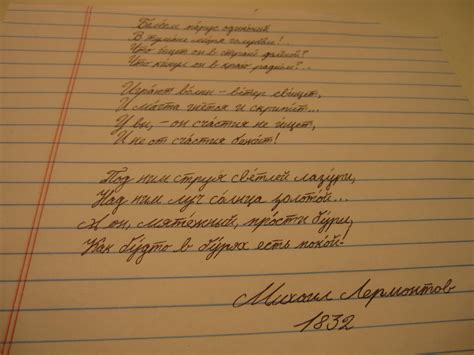 Белеет па́рус одинокий
В тума́не мо́ря голубо́м!..
Что́ и́щет он в стране́ далёкой?
Что́ ки́нул он в краю́ родно́м?..
Игра́ют во́лны – ве́тер сви́щет,
И ма́чта гнётся и скрипи́т...
Увы, – он сча́стия не и́щет,
И не от сча́стия бежи́т!
Под ним струя́ све́тлей лазу́ри,
Над ним луч со́лнца золото́й...
А он, мяте́жный, про́сти бу́ри,
Как бу́дто в бу́рях есть поко́й!
Михаил Лермонтов
1832